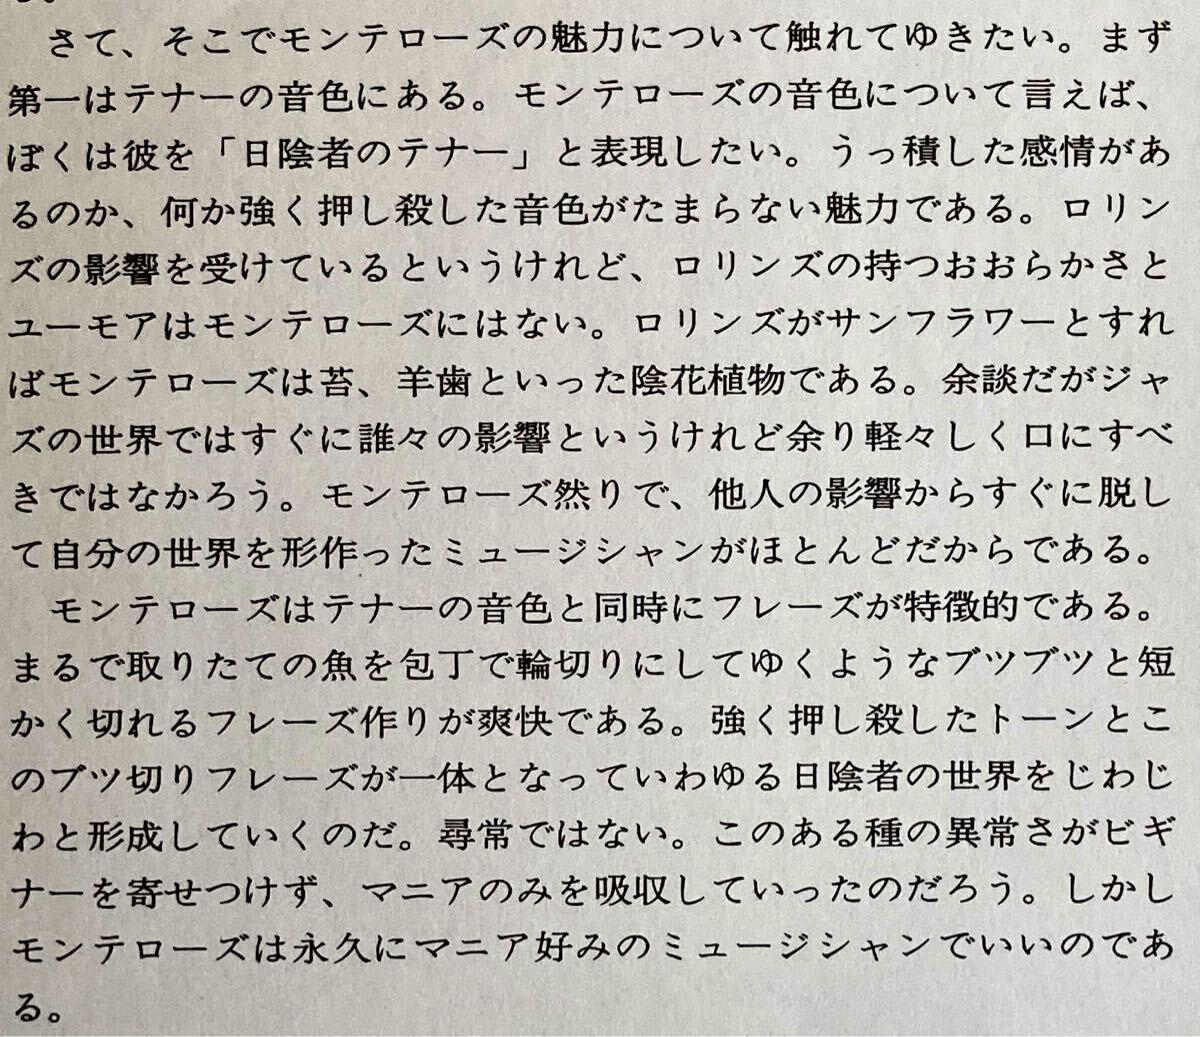 さて、そこでモンテローズの魅力について触れてゆきたい。まず
第一はテナーの音色にある。モンテローズの音色について言えば、
ぼくは彼を「日陰者のテナー」と表現したい。うっ積した感情があ
るのか、何か強く押し殺した音色がたまらない魅力である。ロリン
ズの影響を受けているというけれど、ロリンズの持つおおらかさと
ユーモアはモンテローズにはない。ロリンズがサンフラワーとすれ
ばモンテローズは苔、羊歯といった陰花植物である。余談だがジャ
ズの世界ではすぐに誰々の影響というけれど余り軽々しく口にすべ
きではなかろう。モンテローズ然りで、他人の影響からすぐに脱し
て自分の世界を形作ったミュージシャンがほとんどだからである。
モンテローズはテナーの音色と同時にフレーズが特徴的である。
まるで取りたての魚を包丁で輪切りにしてゆくようなブツブツと短
かく切れるフレーズ作りが爽快である。強く押し殺したトーンとこ
のブツ切りフレーズが一体となっていわゆる日陰者の世界をじわじ
わと形成していくのだ。尋常ではない。このある種の異常さがビギ
ナーを寄せつけず、マニアのみを吸収していったのだろう。しかし
モンテローズは永久にマニア好みのミュージシャンでいいのであ
る。